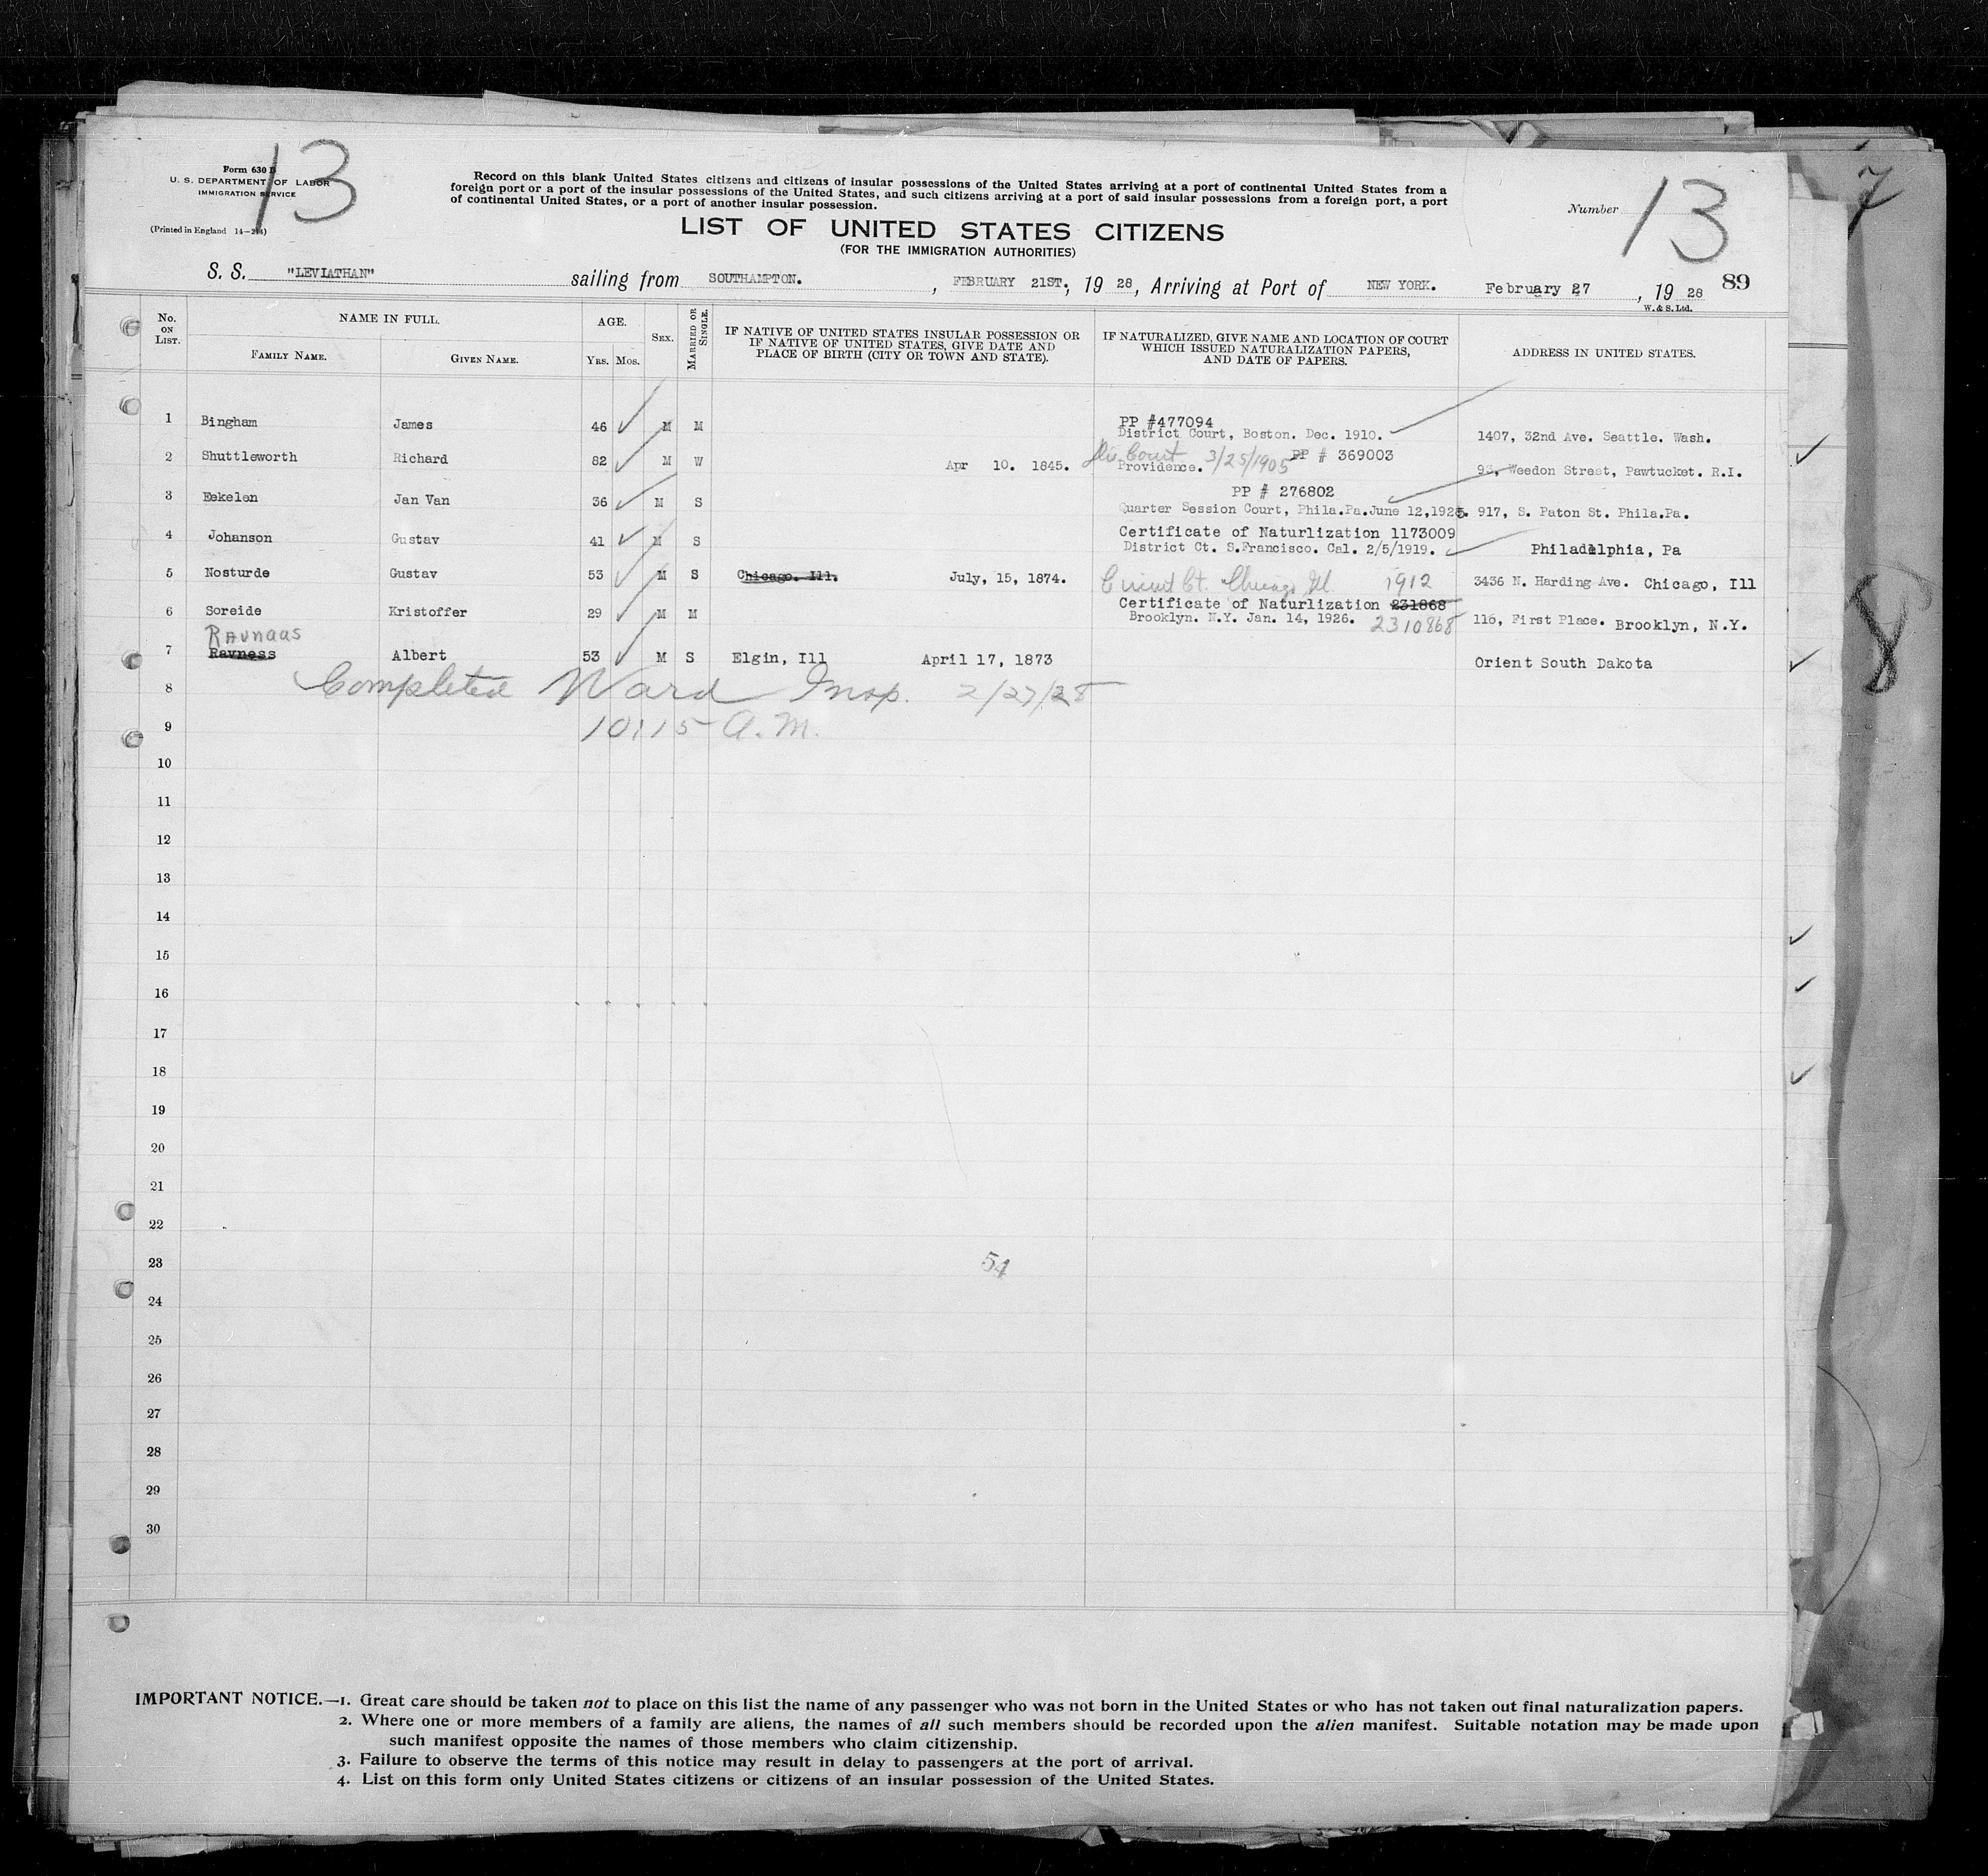 13
Form 630 B
U. S. DEPARTMENT OF LABOR
IMMIGRATION SERVICE
(Printed in England 14-2-4)
Record on this blank United States citizens and citizens of insular possessions of the United States arriving at a port of continental United States from a
foreign port or a port of the insular possessions of the United States, and such citizens arriving at a port of said insular possessions from a foreign port, a port
of continental United States, or a port of another insular possession.
Number 13
7
LIST OF UNITED STATES CITIZENS
(FOR THE IMMIGRATION AUTHORITIES)
S. S. "LEVIATHAN" sailing from SOUTHAMPTON. , FEBRUARY 21ST., 19 28, Arriving at Port of NEW YORK. February 27 , 19 28 89
W. & S. Ltd.
No. ON LIST. NAME IN FULL. AGE. SEX. MARRIED OR SINGLE. IF NATIVE OF UNITED STATES INSULAR POSSESSION OR IF NATIVE OF UNITED STATES, GIVE DATE AND PLACE OF BIRTH (CITY OR TOWN AND STATE). IF NATURALIZED, GIVE NAME AND LOCATION OF COURT WHICH ISSUED NATURALIZATION PAPERS, AND DATE OF PAPERS. ADDRESS IN UNITED STATES.
FAMILY NAME. GIVEN NAME. YRS. MOS.
PP #477094
1 Bingham James 46 M M District Court, Boston. Dec. 1910. 1407, 32nd Ave. Seattle. Wash.
2 Shuttleworth Richard 82 M W Apr 10. 1845. Court Providence. 3/25/1905 PP # 369003 Weedon Street, Pawtucket. R.I.
PP # 276802
3 Eekelen Jan Van 36 M S Quarter Session Court, Phila.Pa.June 12,1925. 917, S. Paton St. Phila.Pa.
Certificate of Naturlization 1173009
4 Johanson Gustav 41 M S District Ct. S.Francisco. Cal. 2/5/1919. Philadelphia, Pa
5 Nosturde Gustav 53 M S Chicago. Ill. July, 15, 1874. Circuit Ct. Chicago Ill. 1912 3436 N. Harding Ave. Chicago, Ill
Certificate of Naturlization 231868
6 Soreide Kristoffer 29 M M Brooklyn. N.Y. Jan. 14, 1926. 2310868 116, First Place. Brooklyn, N.Y.
Ravnaas
7 Ravness Albert 53 M S Elgin, Ill April 17, 1873 Orient South Dakota
8
8 Completed Ward Insp. 2/27/28
9 10:15 A.M.
10
11
12
13
14
15
16
17
18
19
20
21
22
23 54
24
25
26
27
28
29
30
IMPORTANT NOTICE.—1. Great care should be taken not to place on this list the name of any passenger who was not born in the United States or who has not taken out final naturalization papers.
2. Where one or more members of a family are aliens, the names of all such members should be recorded upon the alien manifest. Suitable notation may be made upon
such manifest opposite the names of those members who claim citizenship.
3. Failure to observe the terms of this notice may result in delay to passengers at the port of arrival.
4. List on this form only United States citizens or citizens of an insular possession of the United States.